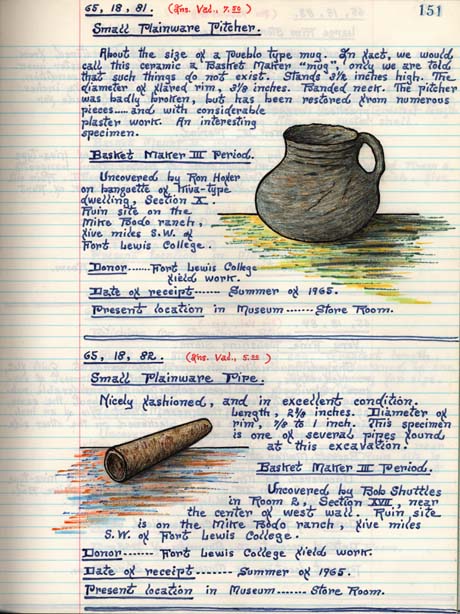 151
65, 18, 81. (Ins. Val., 7.50)
Small Plainware Pitcher.
About the size of a Pueblo type mug. In fact, we would
call this ceramic a Basket Maker "mug", only we are told
that such things do not exist. Stands 3½ inches high. The
diameter of flared rim, 3⅛ inches. Banded neck. The pitcher
was badly broken, but has been restored from numerous
pieces..... and with considerable
plaster work. An interesting
specimen.
Basket Maker III Period.
Uncovered by Ron Hofer
on banguette of Kiva-type
dwelling, Section X.
Ruin site on the
Mike Bodo ranch,
five miles S.W. of
Fort Lewis College.
Donor...... Fort Lewis College
field work.
Date of receipt....... Summer of 1965.
Present location in Museum....... Store Room.
65, 18, 82. (Ins. Val., 5.00)
Small Plainware Pipe.
Nicely fashioned, and in excellent condition.
Length, 2⅝ inches. Diameter of
rim, ⅞ to 1 inch. This specimen
is one of several pipes found
at this excavation.
Basket Maker III Period.
Uncovered by Bob Shuttles
in Room 2, Section XVII, near
the center of west wall. Ruin site
is on the Mike Bodo ranch, five miles
S.W. of Fort Lewis College.
Donor....... Fort Lewis College field work.
Date of receipt....... Summer of 1965.
Present location in Museum....... Store Room.